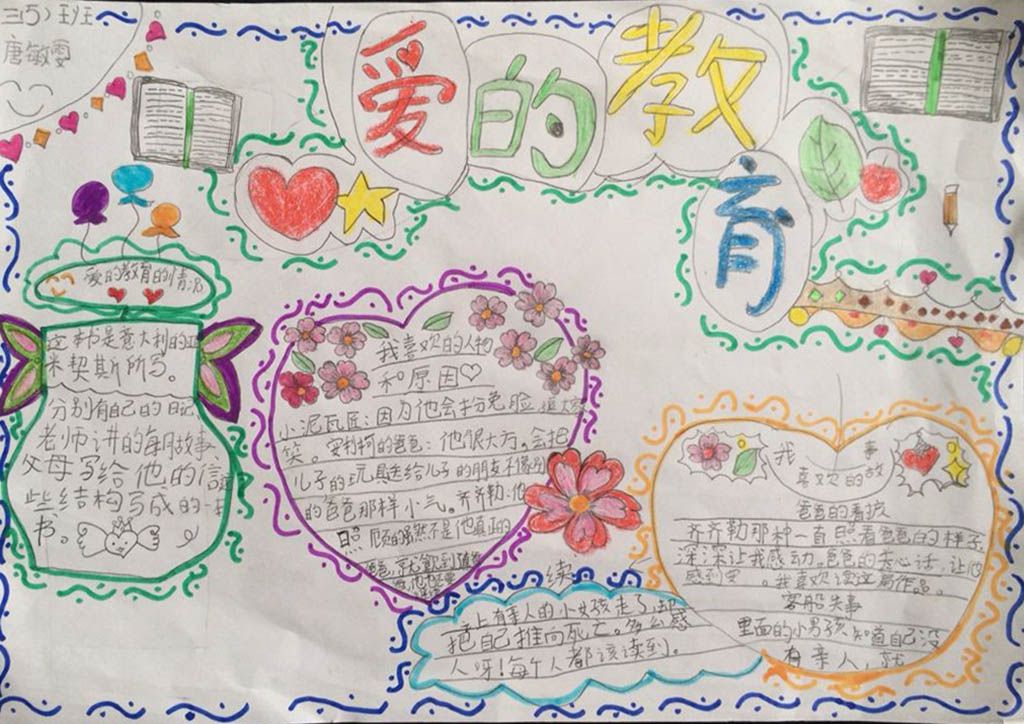 三(5)班
唐敏雯
爱的教
育
爱的教育的情况
这本书是意大利的亚
米契斯所写。
分别有自己的日记
老师讲的每月故事
父母写给他的信
些结构写成的一
书。
我喜欢的人物
和原因
小泥瓦匠:因为他会扮兔脸
笑。安利柯的爸爸:他很大方。会把
儿子的玩具送给儿子的朋友不像别
的爸爸那样小气。齐齐勒:他
照顾的虽然不是他真正的
续
上有亲人的小女孩走了,却
把自己推向死亡。多么感
人呀!每个人都该读到。
我 事
喜欢的故
爸爸的看护
齐齐勒那种一直照看爸爸的样子
深深让我感动。爸爸的 心话,让他
感到 。我喜欢读这篇作品。
客船失事
里面的小男孩,知道自己没
有亲人,就